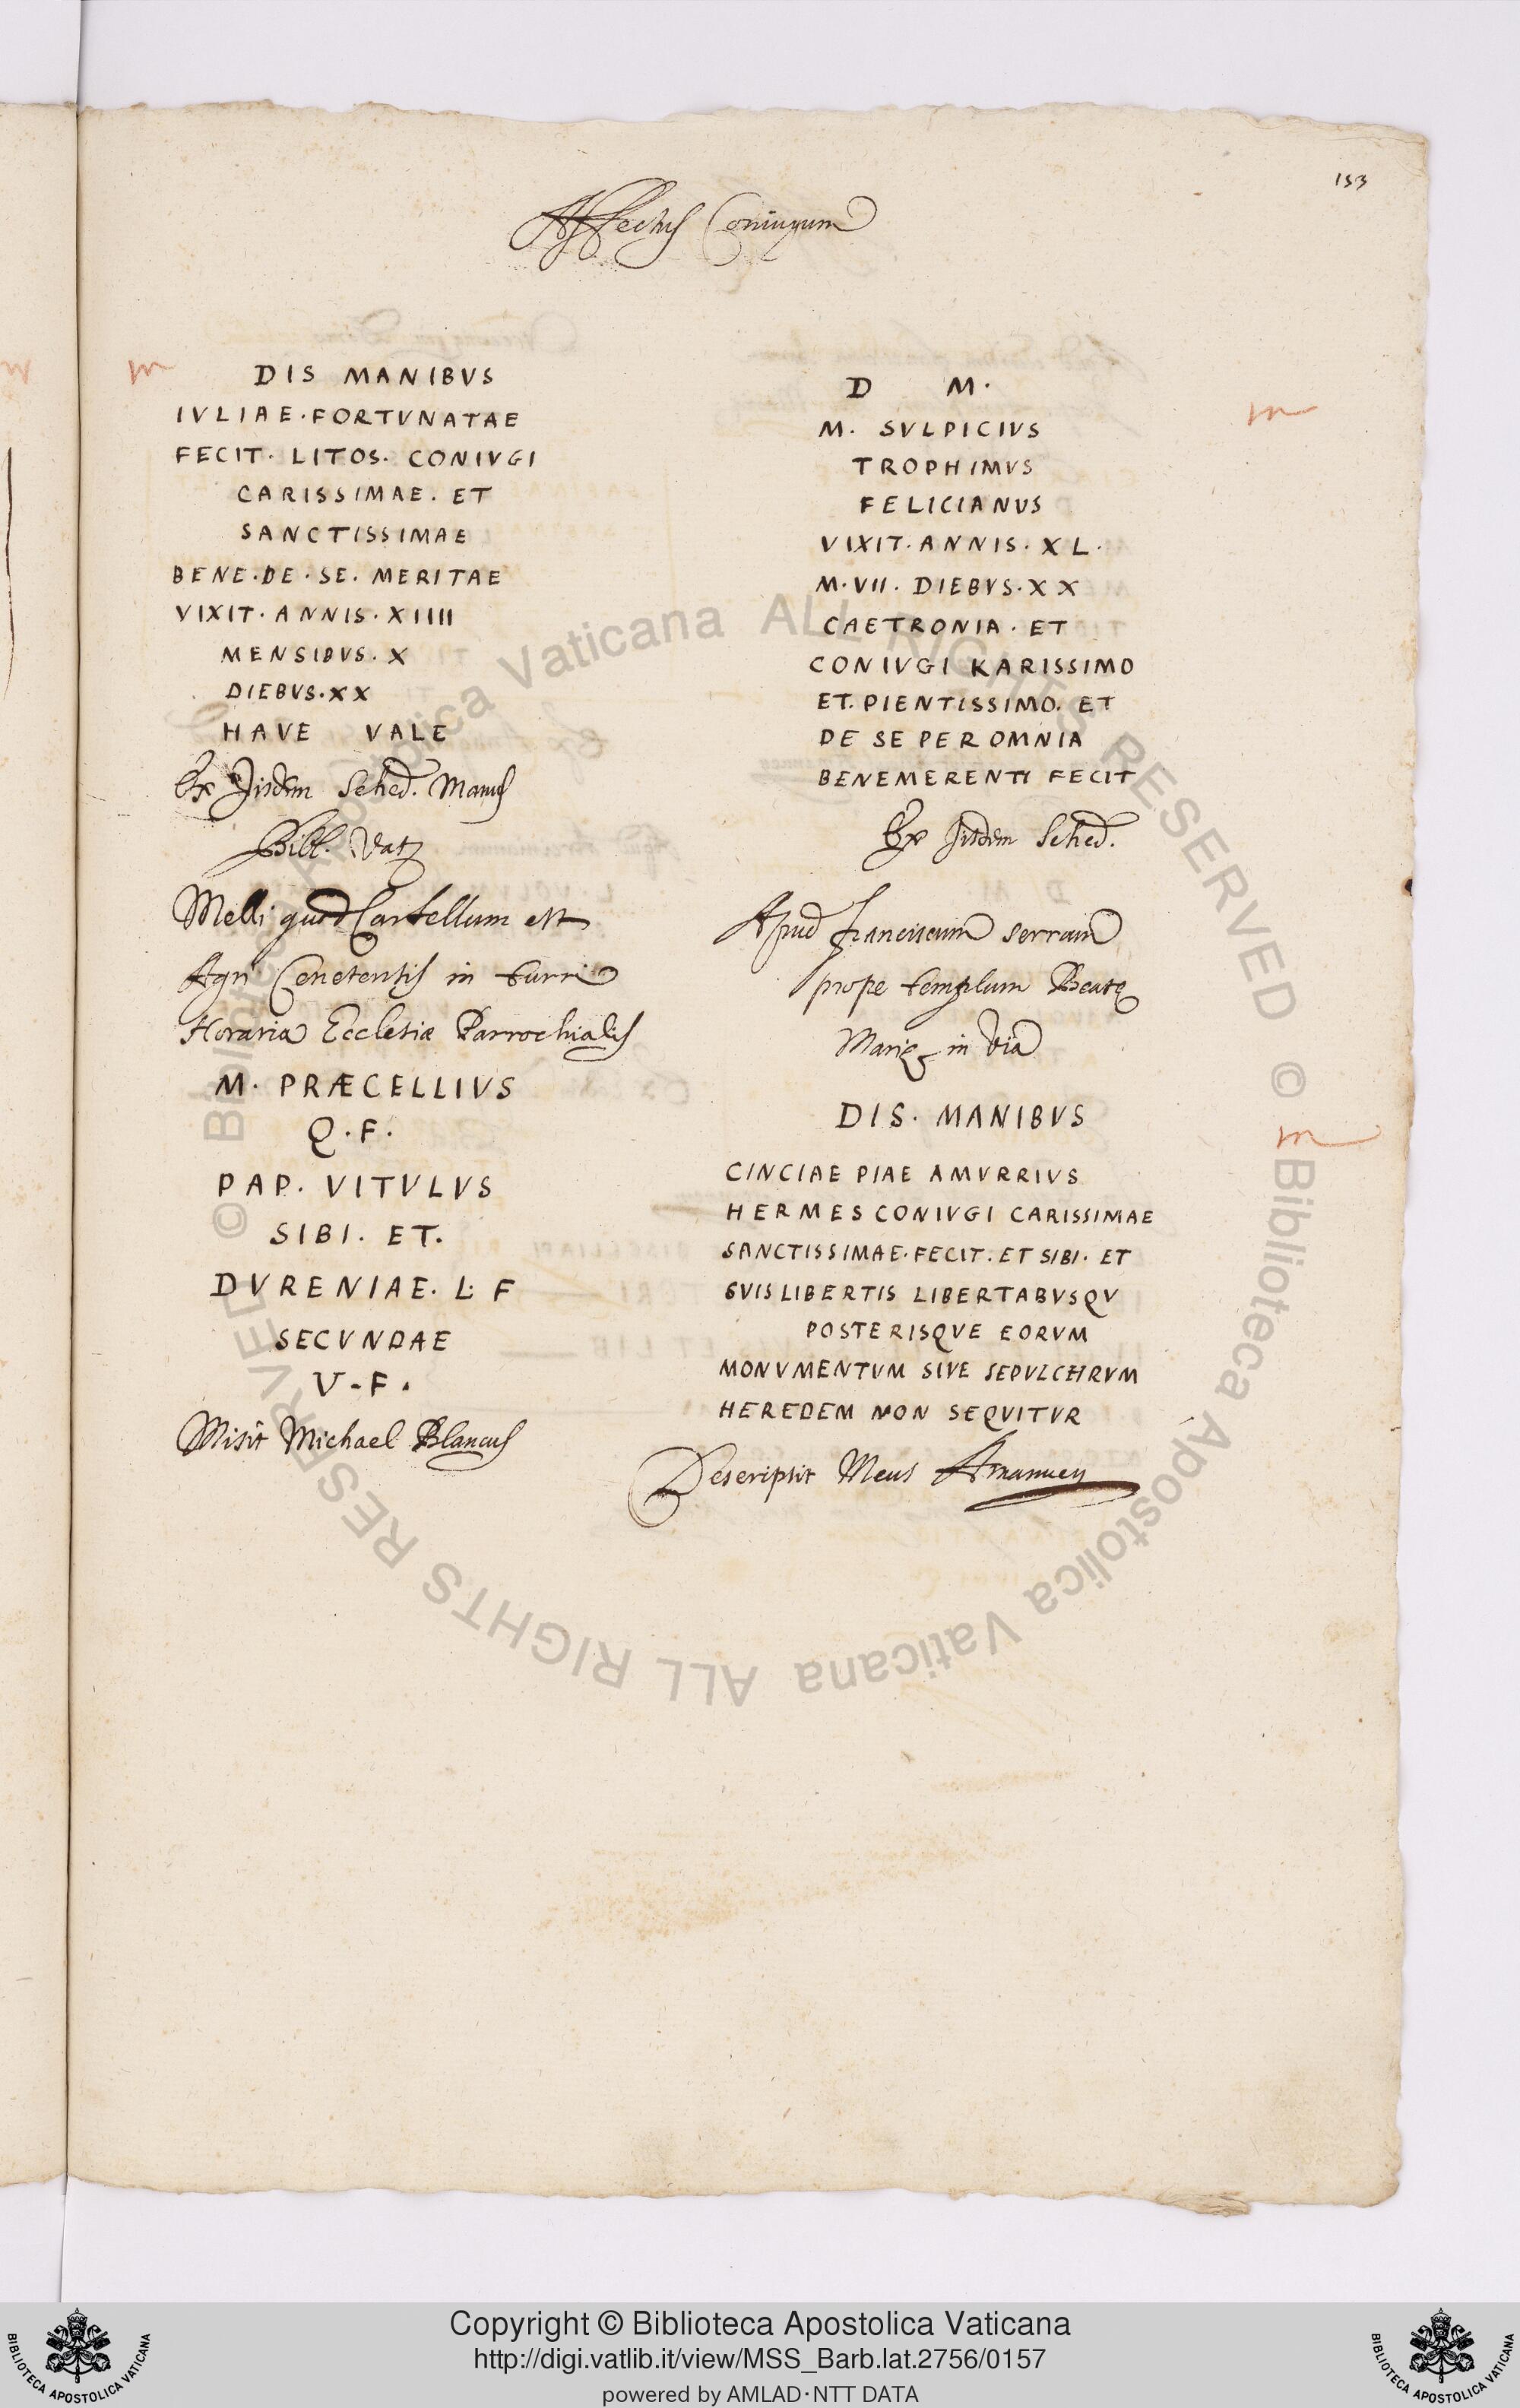 153
Affectus Coniugum
DIS MANIBVS
IVLIAE·FORTVNATAE
FECIT· LITOS· CONIVGI
CARISSIMAE· ET
SANCTISSIMAE
BENE·DE·SE· MERITAE
VIXIT· ANNIS· XIIII
MENSIBVS· X
DIEBVS·XX
HAVE VALE
Ex Jisdem Sched. Manus
Bibl. Vat
Melli quod Castellum est
Agri Cenetensis in turri
Horaria Ecclesiæ Parrochialis
M· PRÆCELLIVS
Q·F·
PAP· VITVLVS
SIBI· ET·
DVRENIAE· L· F
SECVNDAE
V·F·
Misit Michael Blancus
D M·
M· SVLPICIVS
TROPHIMVS
FELICIANVS
VIXIT· ANNIS· XL·
M·VII· DIEBVS·XX
CAETRONIA· ET
CONIVGI KARISSIMO
ET·PIENTISSIMO· ET
DE SE PER OMNIA
BENEMERENTI FECIT
Ex Jisdem Sched.
Apud Franciscum Serram
prope templum Beatę
Marię in Via
DIS· MANIBVS
CINCIAE PIAE AMVRRIVS
HERMES CONIVGI CARISSIMAE
SANCTISSIMAE·FECIT·ET SIBI· ET
SVIS LIBERTIS LIBERTABVSQV
POSTERISQVE EORVM
MONVMENTVM SIVE SEPVLCHRVM
HEREDEM NON SEQVITVR
Descripsit Meus Amanuen
© Biblioteca Apostolica Vaticana ALL RIGHTS RESERVED
© Biblioteca Apostolica Vaticana ALL RIGHTS RESERVED
Copyright © Biblioteca Apostolica Vaticana
http://digi.vatlib.it/view/MSS_Barb.lat.2756/0157
powered by AMLAD·NTT DATA
BIBLIOTECA APOSTOLICA VATICANA
BIBLIOTECA APOSTOLICA VATICANA